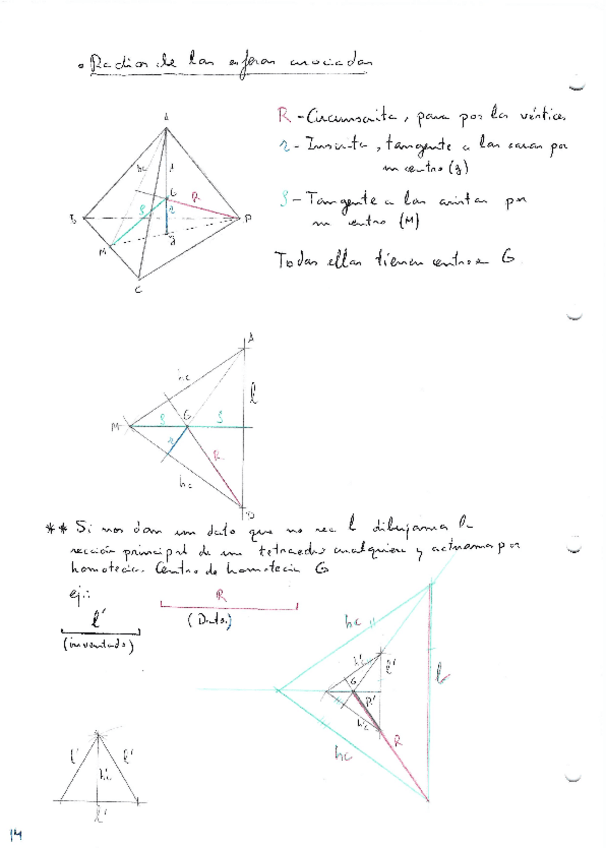 • Radios de las esferas asociadas
R - Circunscrita, pasa por los vértices
r - Inscrita, tangente a las caras por
su centro (g)
ρ - Tangente a las aristas por
su centro (M)
Todas ellas tienen centro G
A
hc
G
R
ρ
r
B
D
M
C
A
hc
l
M
ρ
G
ρ
r
R
hc
D
** Si nos dan un dato que no sea l dibujamos la
sección principal de un tetraedro cualquiera y actuamos por
homotecia. Centro de homotecia G
ej.:
l'
(inventado)
R
(Dato)
hc
h'c
l'
G
R'
h'c
l
R
hc
l'
l'
h'c
l'
14